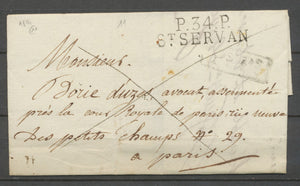 P.34.P.
ST SERVAN
Monsieur
Dorie avocat, assermenté
près la cour Royale de paris rue neuve
des petits champs N° 29.
a paris